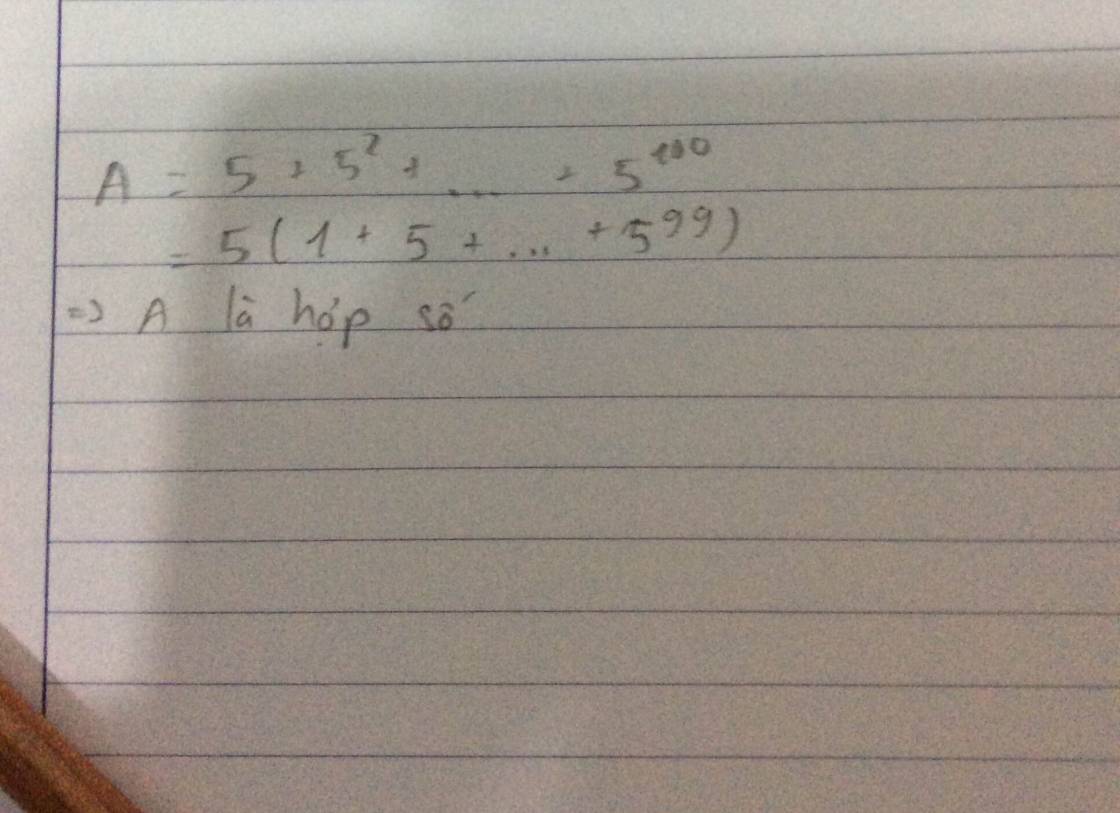 A = 5 + 5² + ... + 5¹⁰⁰
= 5(1 + 5 + ... + 5⁹⁹)
=> A là hợp số